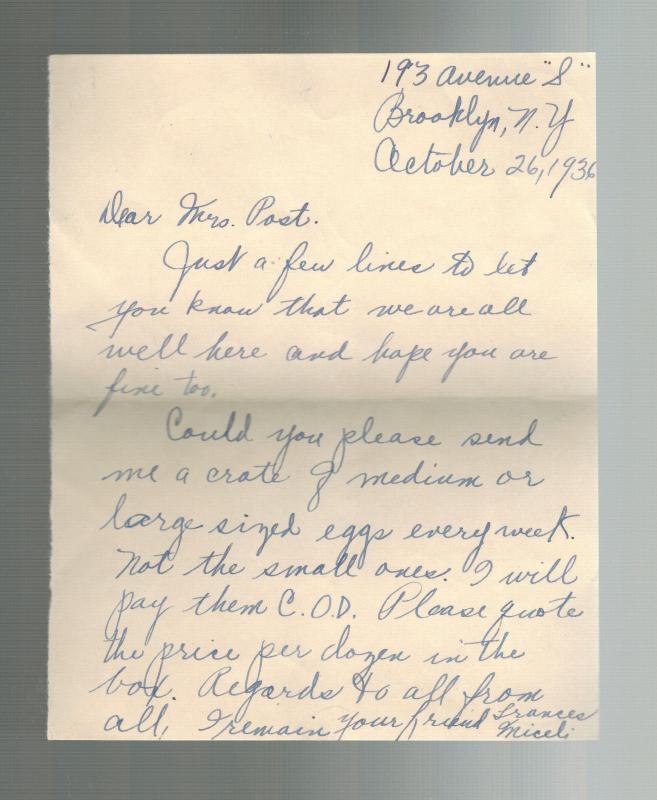 193 Avenue "S"
Brooklyn, N.Y
October 26, 1936
Dear Mrs. Post.
Just a few lines to let
you know that we are all
well here and hope you are
fine too.
Could you please send
me a crate of medium or
large sized eggs every week.
Not the small ones. I will
pay them C.O.D. Please quote
the price per dozen in the
box. Regards to all from
all, I remain your friend Frances
Miceli